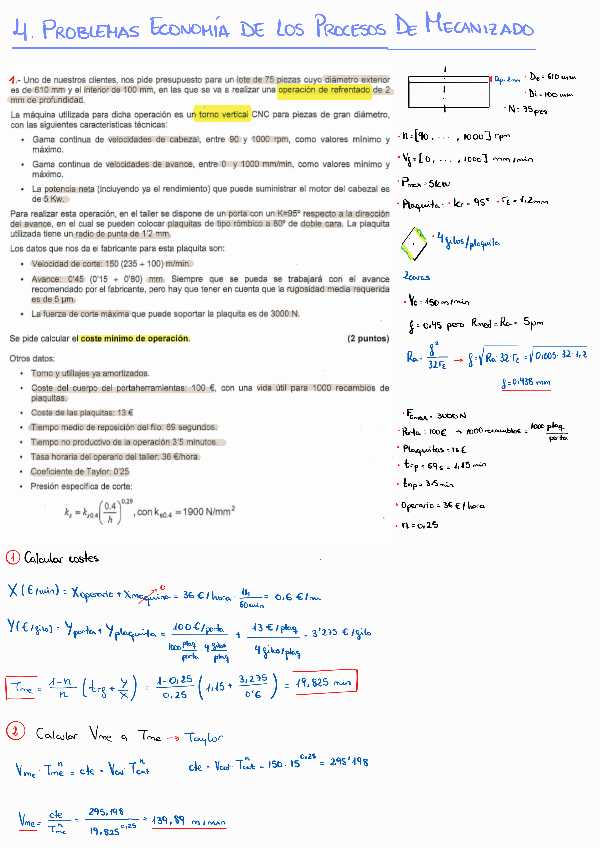 4. PROBLEMAS ECONOMÍA DE LOS PROCESOS DE MECANIZADO
1.- Uno de nuestros clientes, nos pide presupuesto para un lote de 75 piezas cuyo diámetro exterior
es de 610 mm y el interior de 100 mm, en las que se va a realizar una operación de refrentado de 2
mm de profundidad.
La máquina utilizada para dicha operación es un torno vertical CNC para piezas de gran diámetro,
con las siguientes características técnicas:
• Gama continua de velocidades de cabezal, entre 90 y 1000 rpm, como valores mínimo y
máximo.
• Gama continua de velocidades de avance, entre 0 y 1000 mm/min, como valores mínimo y
máximo.
• La potencia neta (incluyendo ya el rendimiento) que puede suministrar el motor del cabezal es
de 5 Kw.
Para realizar esta operación, en el taller se dispone de un porta con un K=95º respecto a la dirección
del avance, en el cual se pueden colocar plaquitas de tipo rómbico a 80º de doble cara. La plaquita
utilizada tiene un radio de punta de 1'2 mm.
Los datos que nos da el fabricante para esta plaquita son:
• Velocidad de corte: 150 (235 ÷ 100) m/min.
• Avance: 0'45 (0'15 ÷ 0'80) mm. Siempre que se pueda se trabajará con el avance
recomendado por el fabricante, pero hay que tener en cuenta que la rugosidad media requerida
es de 5 µm.
• La fuerza de corte máxima que puede soportar la plaquita es de 3000 N.
Se pide calcular el coste mínimo de operación. (2 puntos)
Otros datos:
• Torno y utillajes ya amortizados.
• Coste del cuerpo del portaherramientas: 100 €, con una vida útil para 1000 recambios de
plaquitas.
• Coste de las plaquitas: 13 €
• Tiempo medio de reposición del filo: 69 segundos.
• Tiempo no productivo de la operación 3'5 minutos.
• Tasa horaria del operario del taller: 36 €/hora
• Coeficiente de Taylor: 0'25
• Presión específica de corte:
k_s = k_s0.4 (0.4/h)^0.29, con k_s0.4 = 1900 N/mm²
ap=2mm
· De = 610 mm
· Di = 100 mm
· N = 75 pzs
· n = [90, ..., 1000] rpm
· Vf = [0, ..., 1000] mm/min
· Pmax = 5kW
· Plaquita: · kr = 95º · rε = 1,2mm
· 4 filos/plaquita
2 caras
· Vc = 150 m/min
f = 0,45 pero Rmed = Ra = 5µm
Ra = f²/32rε → f = √Ra·32·rε = √0,005·32·1,2
f = 0,438 mm
· Fcmax = 3000N
· Porta: 100€ → 1000 recambios = 1000 plaq/porta
· Plaquitas = 13€
· trp = 69s = 1,15min
· tnp = 3,5min
· Operario = 36 €/hora
· n = 0,25
① Calcular costes
X (€/min) = Xoperario + Xmaquina = 36 €/hora · 1h/60min = 0,6 €/m
Y (€/filo) = Yporta + Yplaquita = 100€/porta / (1000 plaq/porta · 4 filos/plaq) + 13 €/plaq / 4 filos/plaq = 3'275 €/filo
Tme = 1-n/n (trf + Y/X) = 1-0,25/0,25 (1,15 + 3,275/0'6) = 19,825 min
② Calcular Vme a Tme → Taylor
Vme · Tme^n = cte = Vcut · Tcut^n cte = Vcut · Tcut^n = 150 · 15^0,25 = 295'198
Vme = cte/Tme^n = 295,198/19,825^0,25 = 139,89 m/min